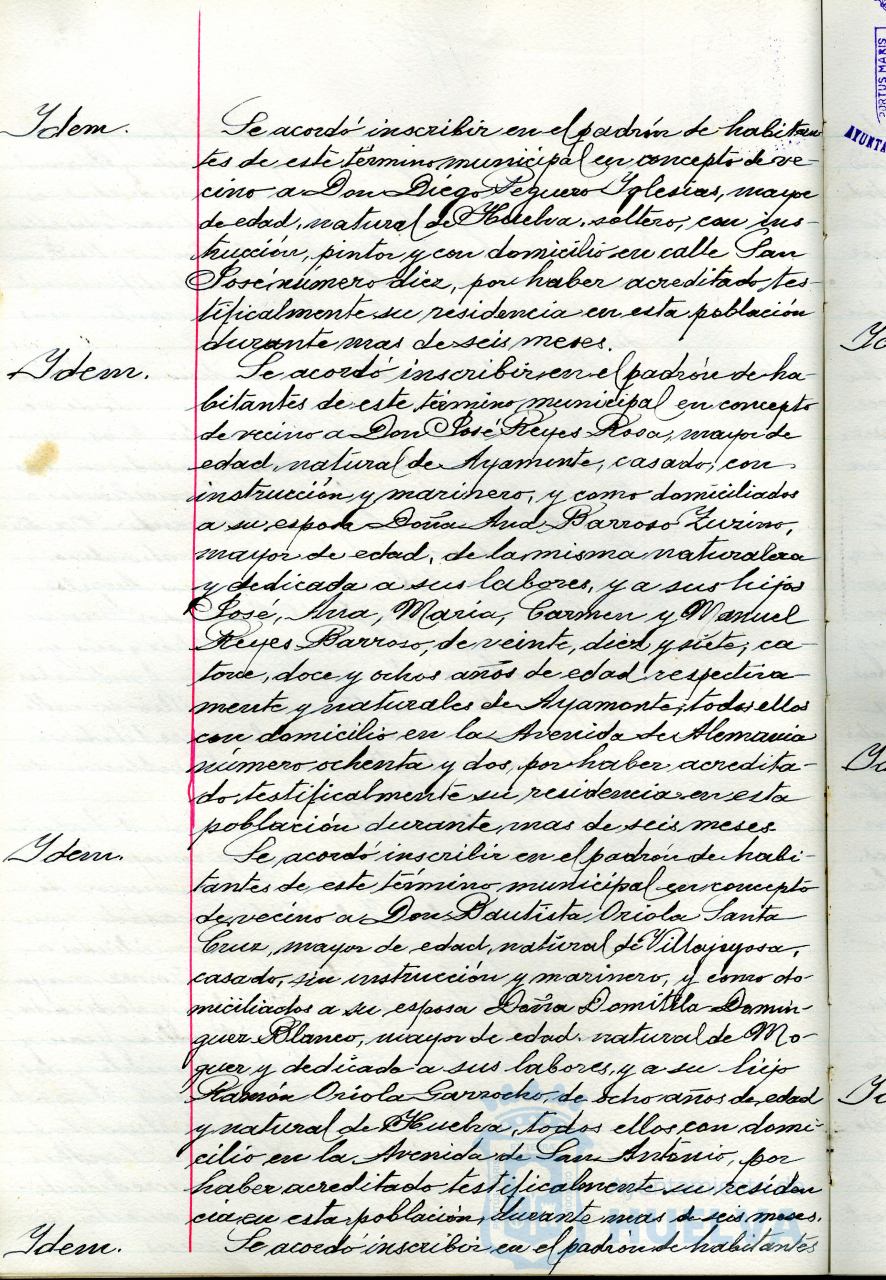 Ydem.
Se acordó inscribir en el padrón de habitan
tes de este término municipal en concepto de ve-
cino a Don Diego Peguero Yglesias, mayor
de edad, natural de Huelva, soltero, con ins-
trucción, pintor y con domicilio en calle San
José número diez, por haber acreditado tes-
tificalmente su residencia en esta población
durante mas de seis meses.
Ydem.
Se acordó inscribir en el padrón de ha-
bitantes de este término municipal en concepto
de vecino a Don José Reyes Rosa, mayor de
edad, natural de Ayamonte, casado, con
instrucción y marinero, y como domiciliados
a su esposa Doña Ana Barroso Zurino,
mayor de edad, de la misma naturaleza
y dedicada a sus labores, y a sus hijos
José, Ana, Maria, Carmen y Manuel
Reyes Barroso, de veinte, diez y siete, ca-
torce, doce y ochos años de edad respectiva-
mente y naturales de Ayamonte, todos ellos
con domicilio en la Avenida de Alemania
número ochenta y dos, por haber acredita-
do testificalmente su residencia en esta
población durante mas de seis meses.
Ydem.
Se acordó inscribir en el padrón de habi-
tantes de este término municipal en concepto
de vecino a Don Bautista Oriola Santa
Cruz, mayor de edad, natural de Villajoyosa,
casado, sin instrucción y marinero, y como do-
miciliados a su esposa Doña Domitila Domin-
guez Blanco, mayor de edad, natural de Mo-
guer y dedicada a sus labores, y a su hijo
Ramón Oriola Garrocho, de ocho años de edad
y natural de Huelva, todos ellos con domi-
cilio en la Avenida de San Antonio, por
haber acreditado testificalmente su residen
cia en esta población, durante mas de seis meses.
Ydem.
Se acordó inscribir en el padrón de habitantes
PORTUS MARIS
AYUNTA
Ayuntamiento de
HUELVA